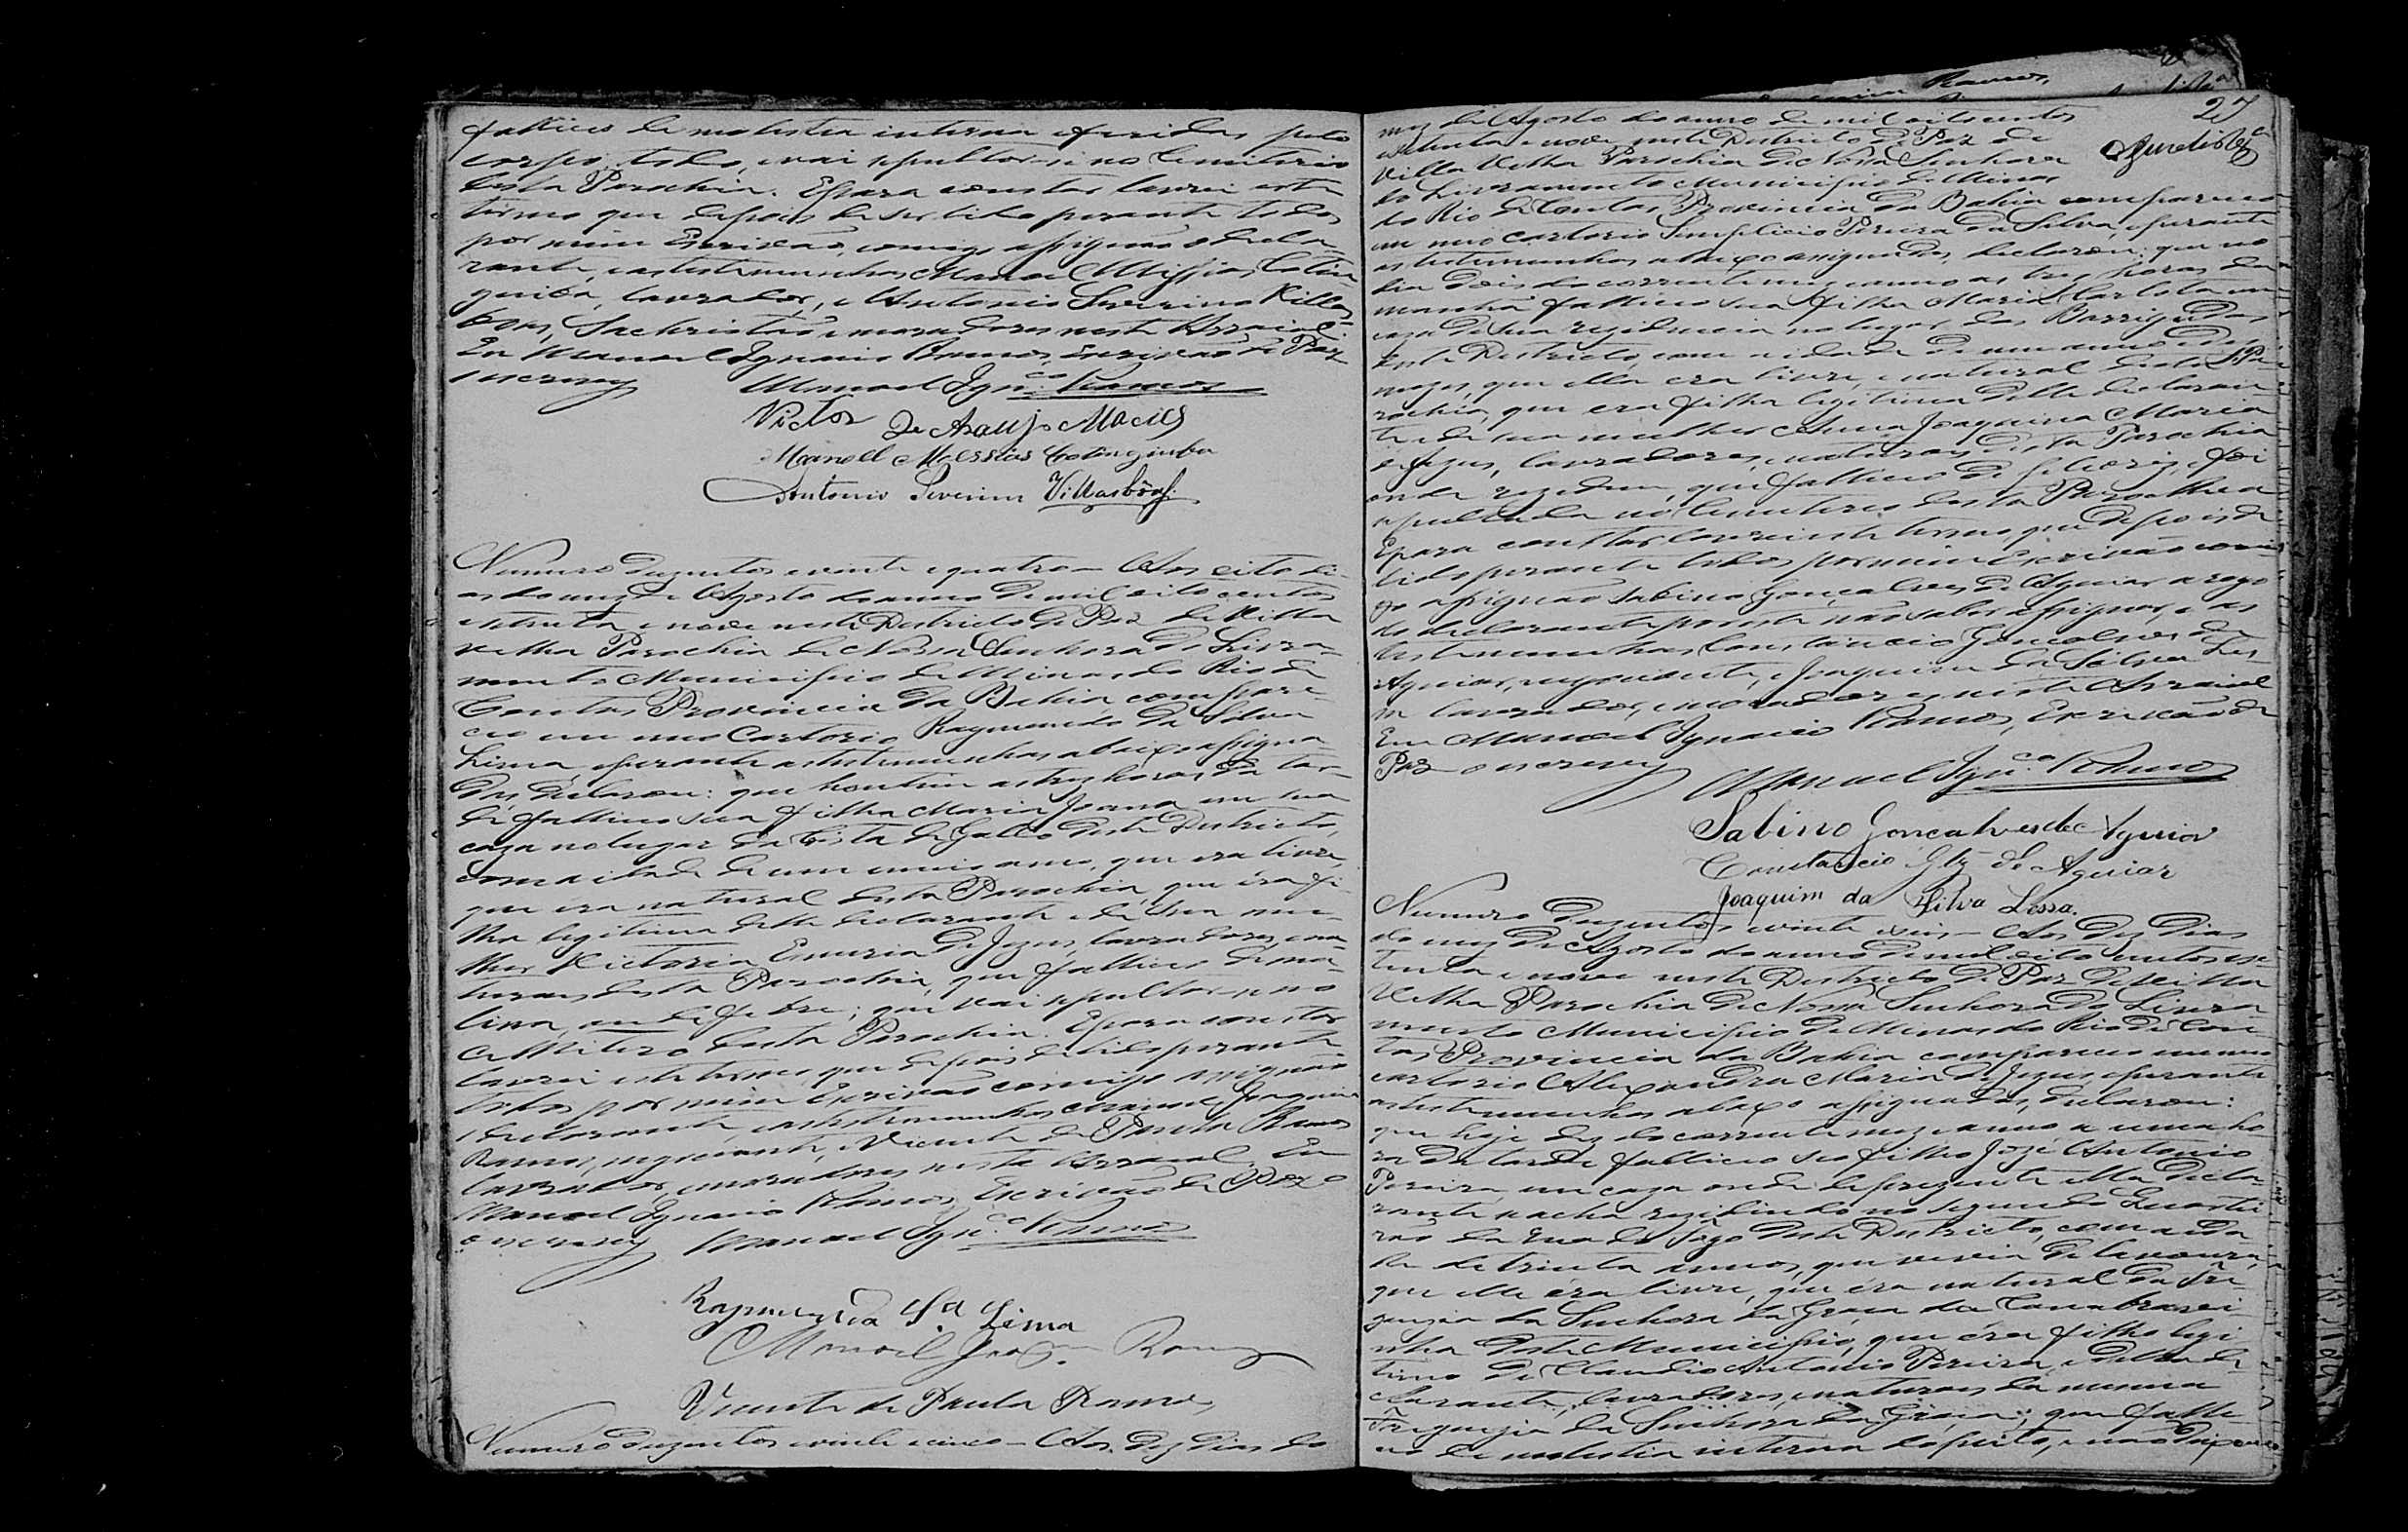 falleceo de molestia interna e feridas pelo
corpo todo, e vai sepultar-se no Cemiterio
desta Parochia. E para constar lavrei este
termo que depois de ser lido perante todos
por mim Escrivão, comigo assignão o decla-
rante, e as testemunhas Manoel Missias Cotin
guiba, lavrador, e Antonio Severino Villas-
boas, Sachristão e moradores neste Arraial.
Eu Manoel Ignacio Ramos, Escrivão de Paz
o escrevy
Manoel Ign.co Ramos
Victor de Araujo Macies
Manoel Messias Cotinguiba
Antonio Severino Villasbôas
Numero duzentos e vinte e quatro - Aos oito di-
as do mez de Agosto do anno de mil oito centos
e setenta e nove neste Districto de Paz de Villa
velha Parochia de Nossa Senhora do Livra-
mento Municipio de Minas do Rio de
Contas Provincia da Bahia compare-
ceo em meo Cartorio Raymundo da Silva
Lima, e perante as testemunhas abaixo assigna-
das declarou: que hontem as trez horas da tar-
de falleceo sua filha Maria Joana em sua
caza no lugar da Crista de Gallo deste Districto,
com a idade de um meio anno, que era livre,
que era natural desta Parochia, que éra fi-
lha legitima delle declarante e de sua mu-
lher Victoria Emeria de Jezus, lavradores, e na-
turaes desta Parochia, que falleceo de ma-
lina, ou de febre; que vai sepultar-se no
Cemitero desta Parochia. E para constar
lavrei este termo, que depois de lido perante
todos por mim Escrivão comigo assignão
o declarante, e as testemunhas Manoel Joaquim
Ramos, negociante, e Vicente de Paula Ramos
lavrador, moradores nesta Arraial. Eu
Manoel Ignacio Ramos, Escrivão de Paz o
o escrevy Manoel Ign.co Ramos
Raymundo da S.a Lima
Manoel Joaq.m Ramos
Vicente de Paula Ramos
Numero duzentos e vinte e cinco - Aos dez dias do
27
mez de Agosto do anno de mil oitocentos
e setenta e nove neste Districto de Paz de
Villa Velha Parochia de Nossa Senhora
do Livramento Municipio de Minas
do Rio de Contas Provincia da Bahia compareceo
em meo cartorio Simplicio Pereira da Silva, e perante
as testemunhas abaixo assignadas, declarou: que no
dia dois do corrente mez e anno as trez horas da
manhã falleceo sua filha Maria Carlota em
caza de sua rezidencia no lugar das Barrigudas
deste Districto, com a idade de um anno e dois
mezes, que ella era livre, e natural desta Pa-
rochia, que era filha legitima delle declaran-
te e de sua mulher Anna Joaquina Maria
de Jezus, lavradores, e naturaes desta Parochia
onde rezidem, que falleceo de , e foi
sepultada no Cemiterio desta Parochia
E para constar lavrei este termo, que depois de
lido perante todos por mim Escrivão comi
go assignão Sabino Gonçalves de Aguiar a rogo
do declarante por este não saber assignar, e as
testemunhas Constancio Gonçalves de
Aguiar, negociante, e Joaquim da Silva Les-
sa lavrador, e moradores neste Arraial
Eu Manoel Ignacio Ramos, Escrivão de
Paz o escrevy
Manoel Ign.co Ramos
Sabino Goncalves de Aguiar
Constancio Glz de Aguiar
Joaquim da Silva Lessa.
Numero duzentos e vinte e seis - Aos dez dias
do mez de Agosto do anno de mil oito centos e se-
tenta e nove neste Districto de Paz de Villa
Velha Parochia de Nossa Senhora do Livra-
mento Municipio de Minas do Rio de Con-
tas Provincia da Bahia compareceo em meo
cartorio Alexandra Maria de Jezus, e perante
as testemunhas abaixo assignadas, declarou:
que hoje dez do corrente mez e anno a uma ho-
ra da tarde falleceo seo filho José Antonio
Pereira em caza onde de prezente ella decla-
rante se acha rezidindo no segundo Quartei
rão da rua do Fogo deste Districto, com a ida-
de de trinta annos, que vevia de lavoura,
que elle éra livre, que éra natural da Fre-
guezia da Senhora da Graça da Canabravei-
nha deste Municipio, que éra filho legi
timo de Claudio Antonio Pereira, e della de-
clarante, lavradores, e naturaes da mesma
Freguezia da Senhora da Graça; que falle-
ceo de molestia interna do peito, e não deixou